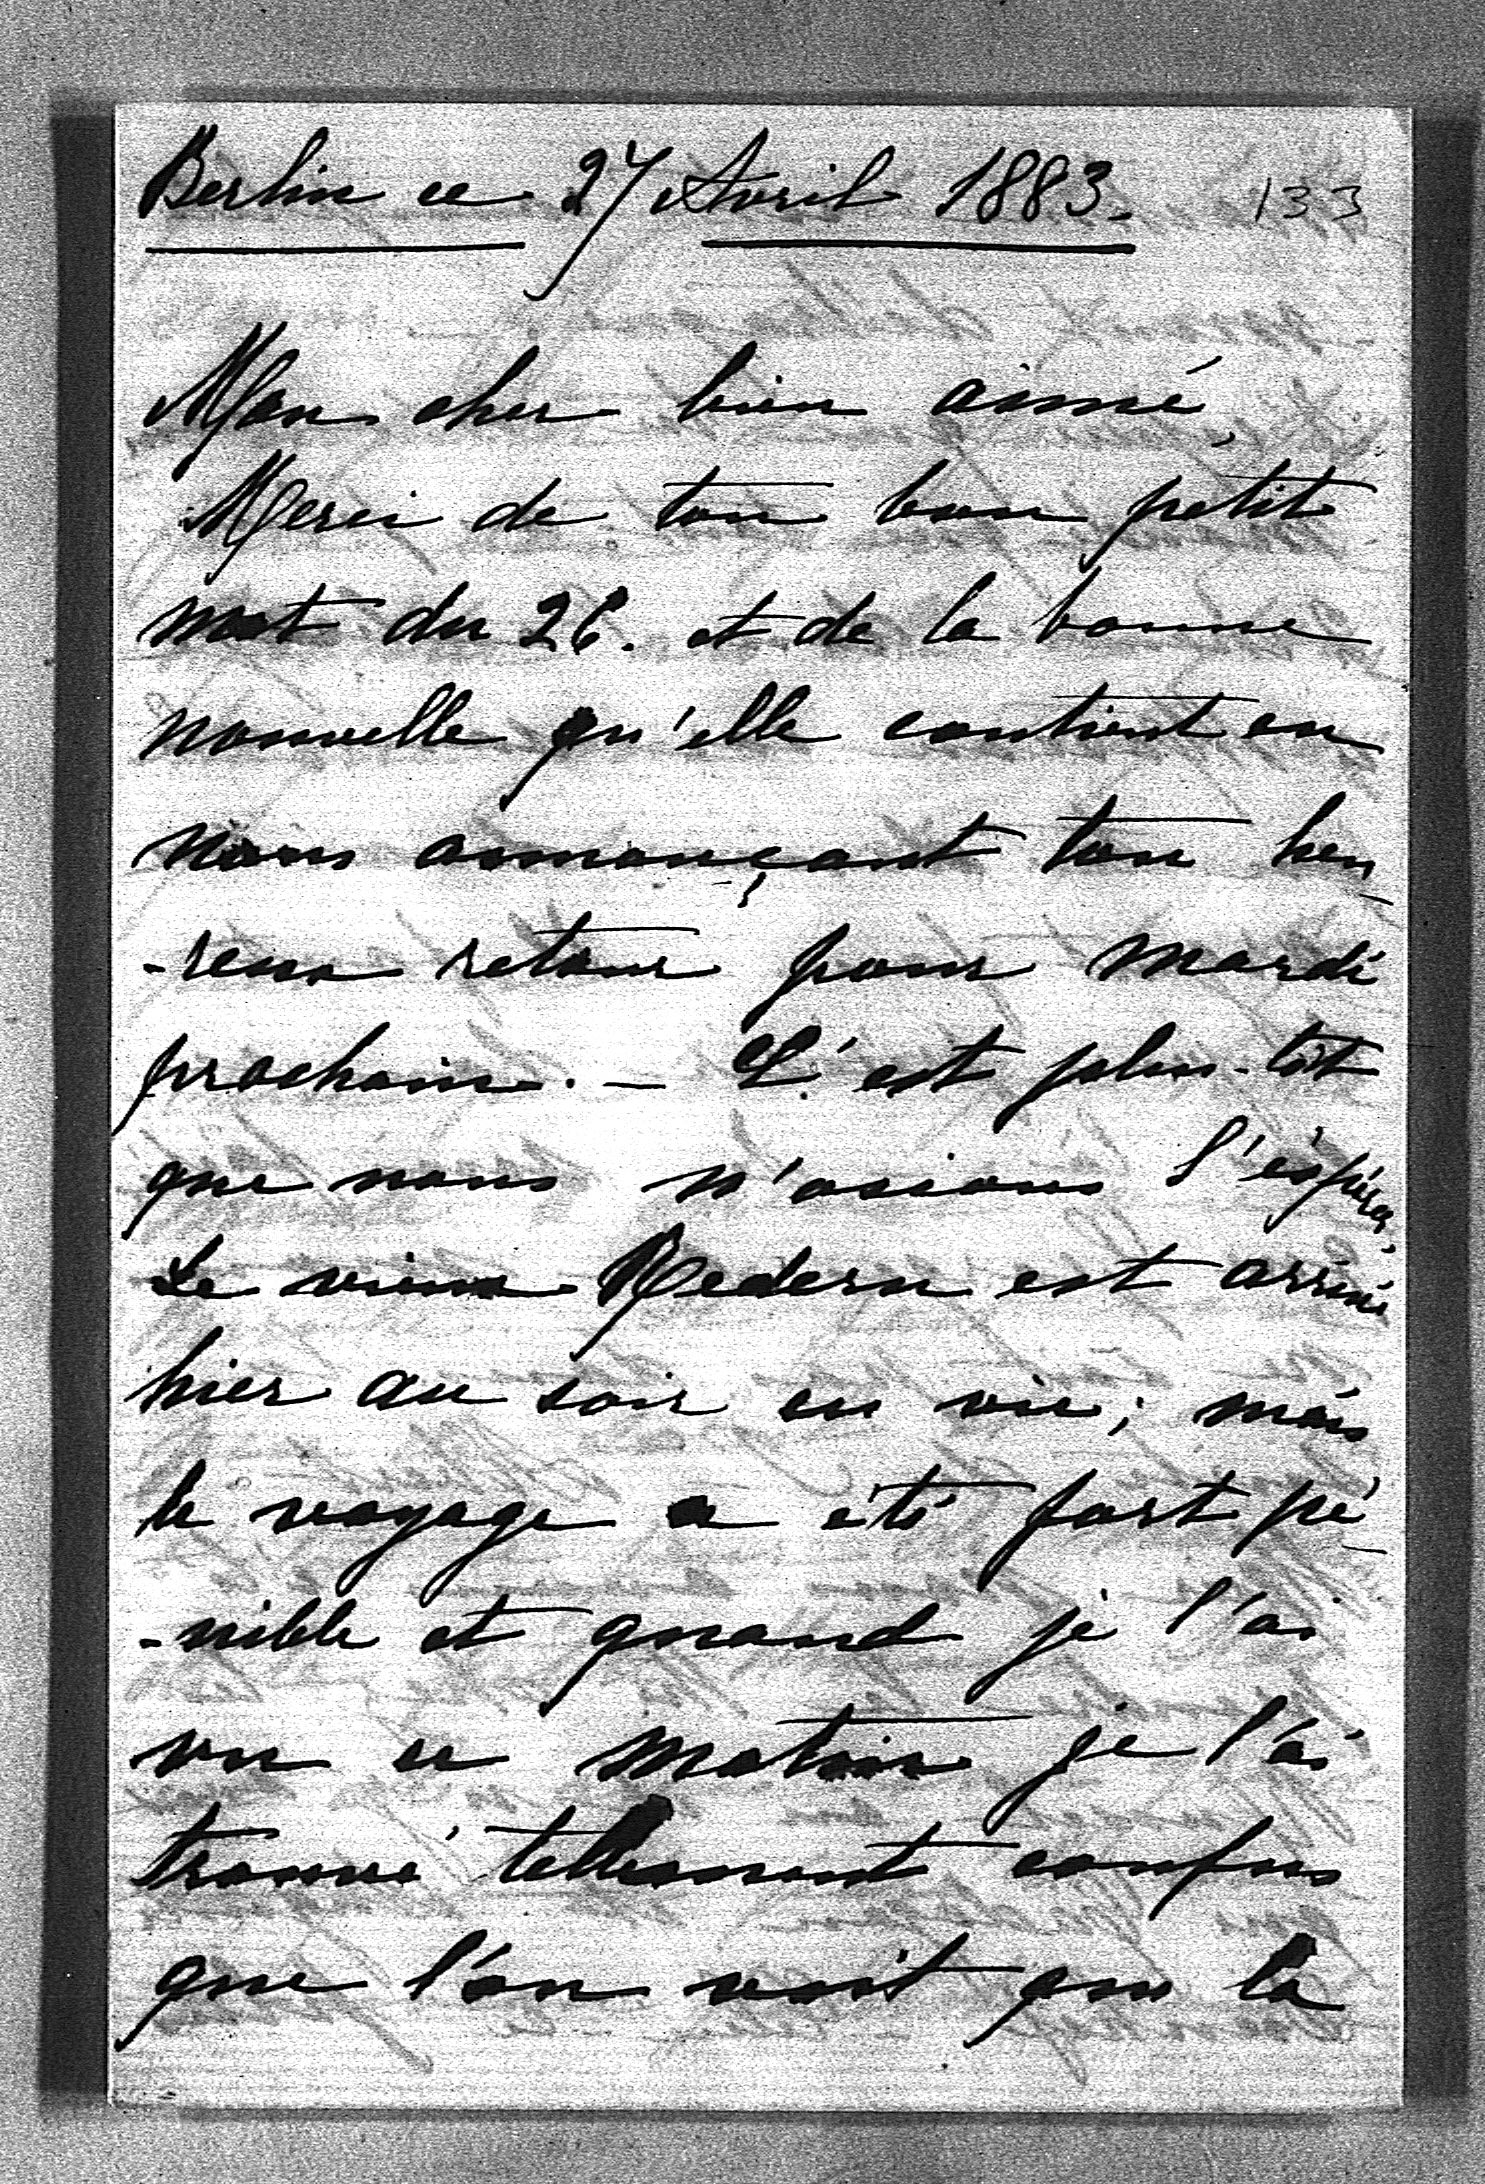 Berlin ce 27 Avril 1883. 133
Mon cher bien aimé,
Merci de ton bon petit
mot du 26. et de la bonne
nouvelle qu'elle contient en
nous annonçant ton heu
-reux retour pour mardi
prochain. — C'est plus-tôt
que nous n'osions l'éspérer,
Le vieux Redern est arrivé
hier au soir en vie; mais
le voyage a été fort pé
-nible et quand je l'ai
vu ce matin je l'ai
trouvé tellement confus
que l'on voit que la